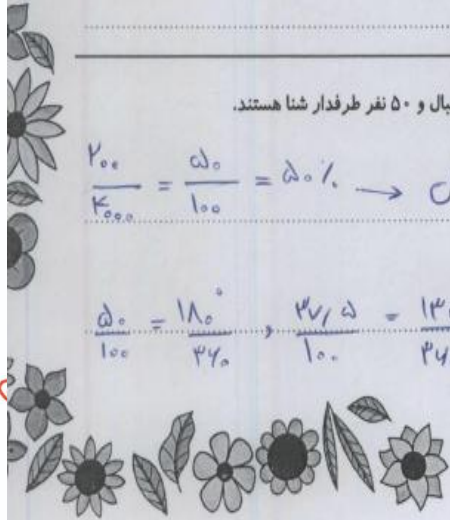 بال و ۵۰ نفر طرفدار شنا هستند.
۲۰۰/۴۰۰۰ = ۵۰/۱۰۰ = ۵۰٪ →
۵۰/۱۰۰ = ۱۸۰°/۳۶۰ , ۳۷/۵/۱۰۰ =